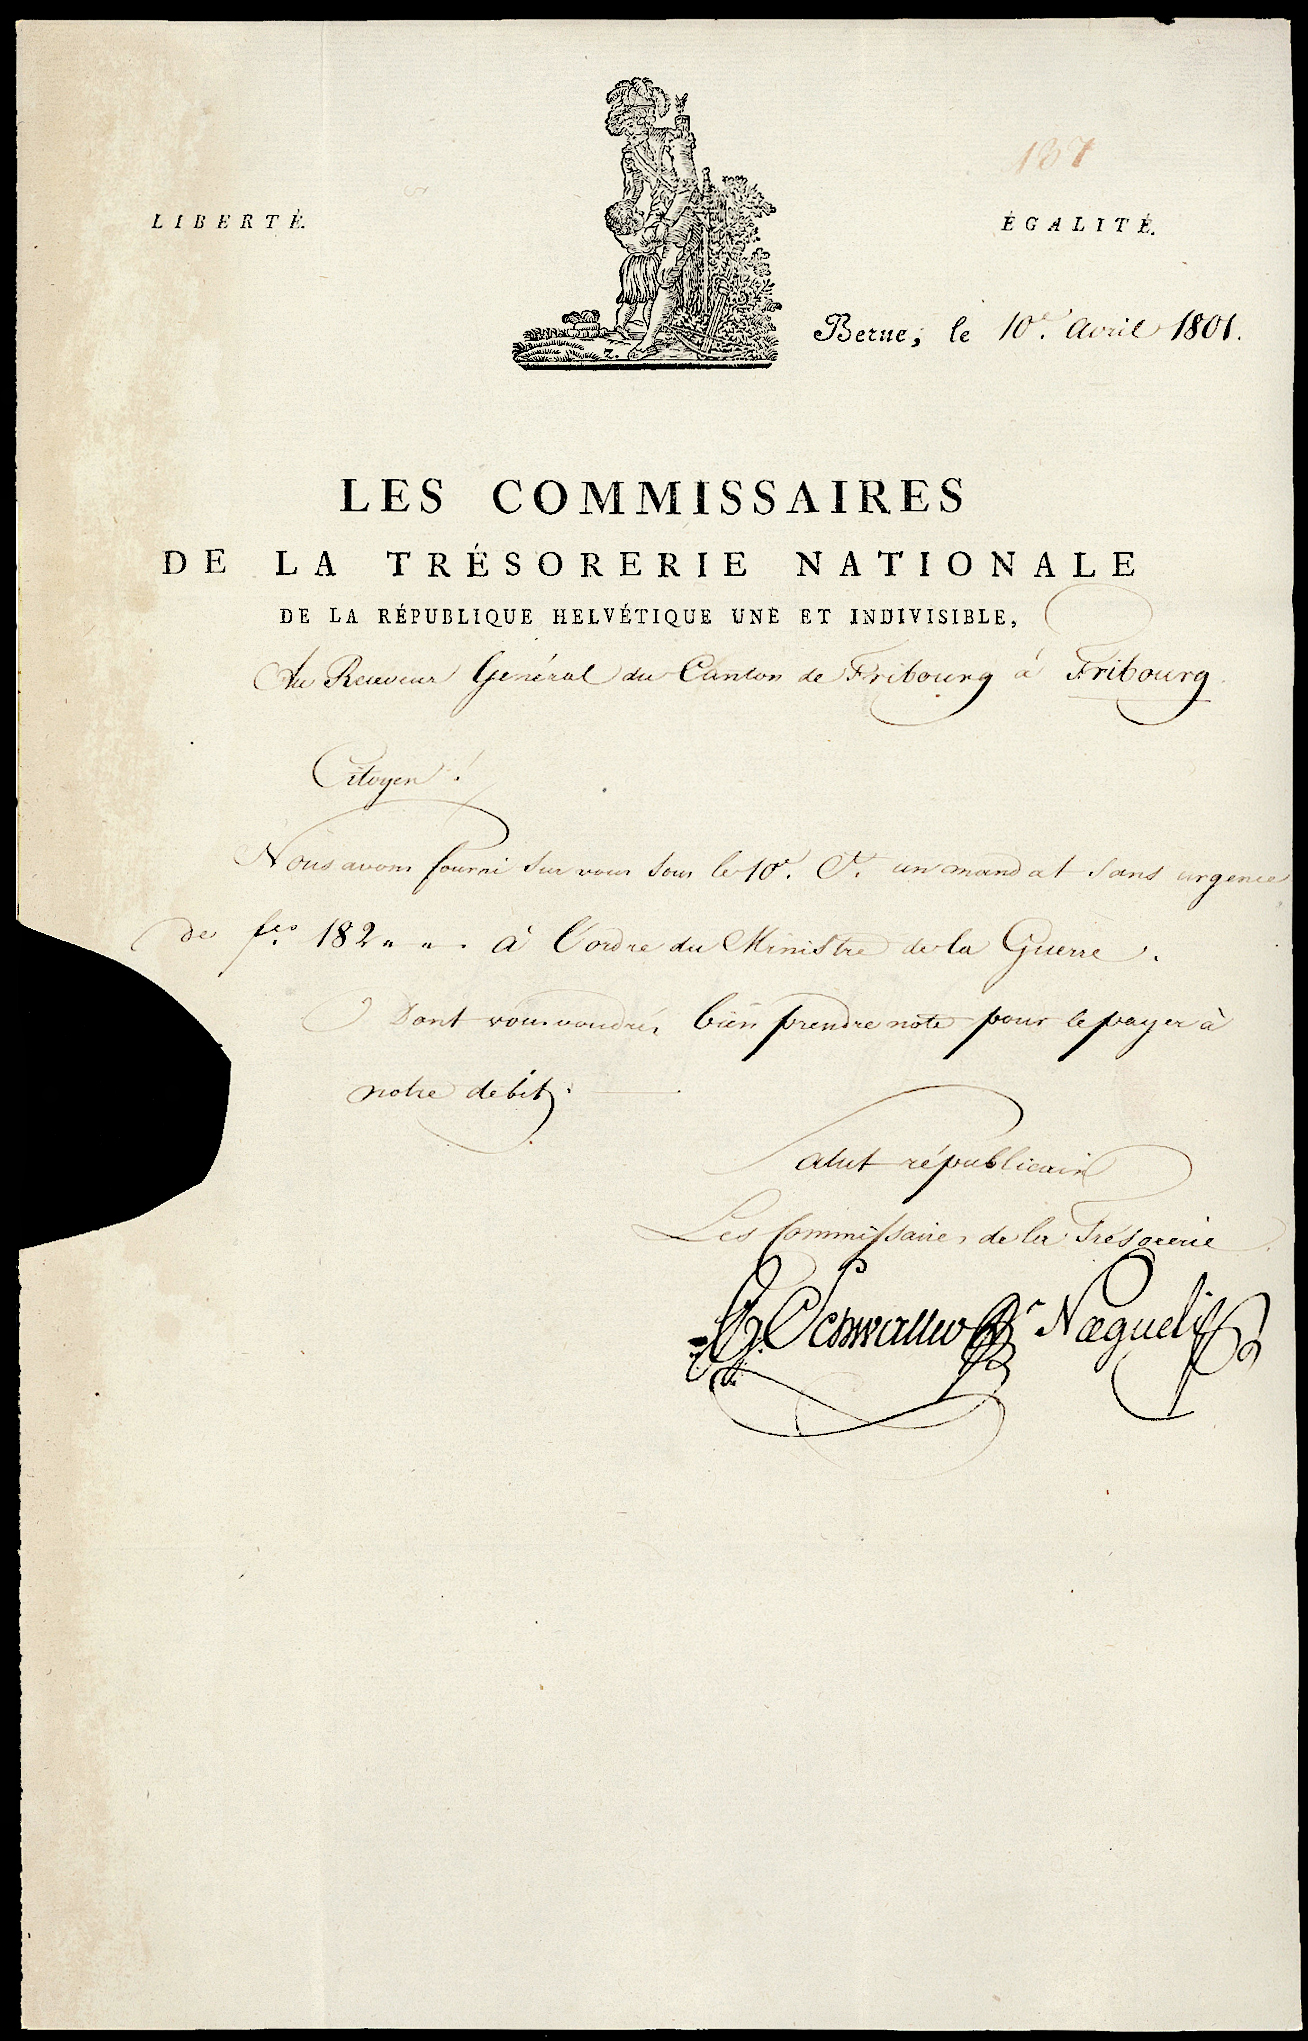 137
LIBERTÉ.
ÉGALITÉ.
Z.
Berne, le 10e. Avril 1801.
LES COMMISSAIRES
DE LA TRÉSORERIE NATIONALE
DE LA RÉPUBLIQUE HELVÉTIQUE UNE ET INDIVISIBLE,
Au Receveur Général du Canton de Fribourg à Fribourg.
Citoyen!
Nous avons fourni sur vous sous le 10e. Ct. un mandat sans urgence
de frcs 182 „ „ . à l'ordre du Ministre de la Guerre.
Dont vous voudrés bien prendre note pour le payer à
notre debit.
Salut républicain
Les Commissaires de la Trésorerie
Naegueli